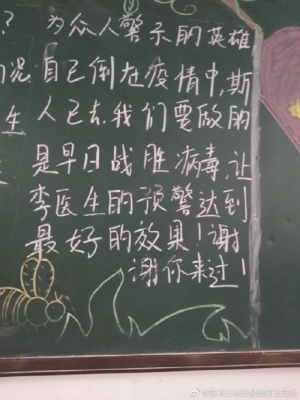 ? 为众人警示的英雄
自己倒在疫情中,斯
生 人已去,我们要做的
是早日战胜病毒,让
李医生的预警达到
最好的效果!谢
谢你来过!